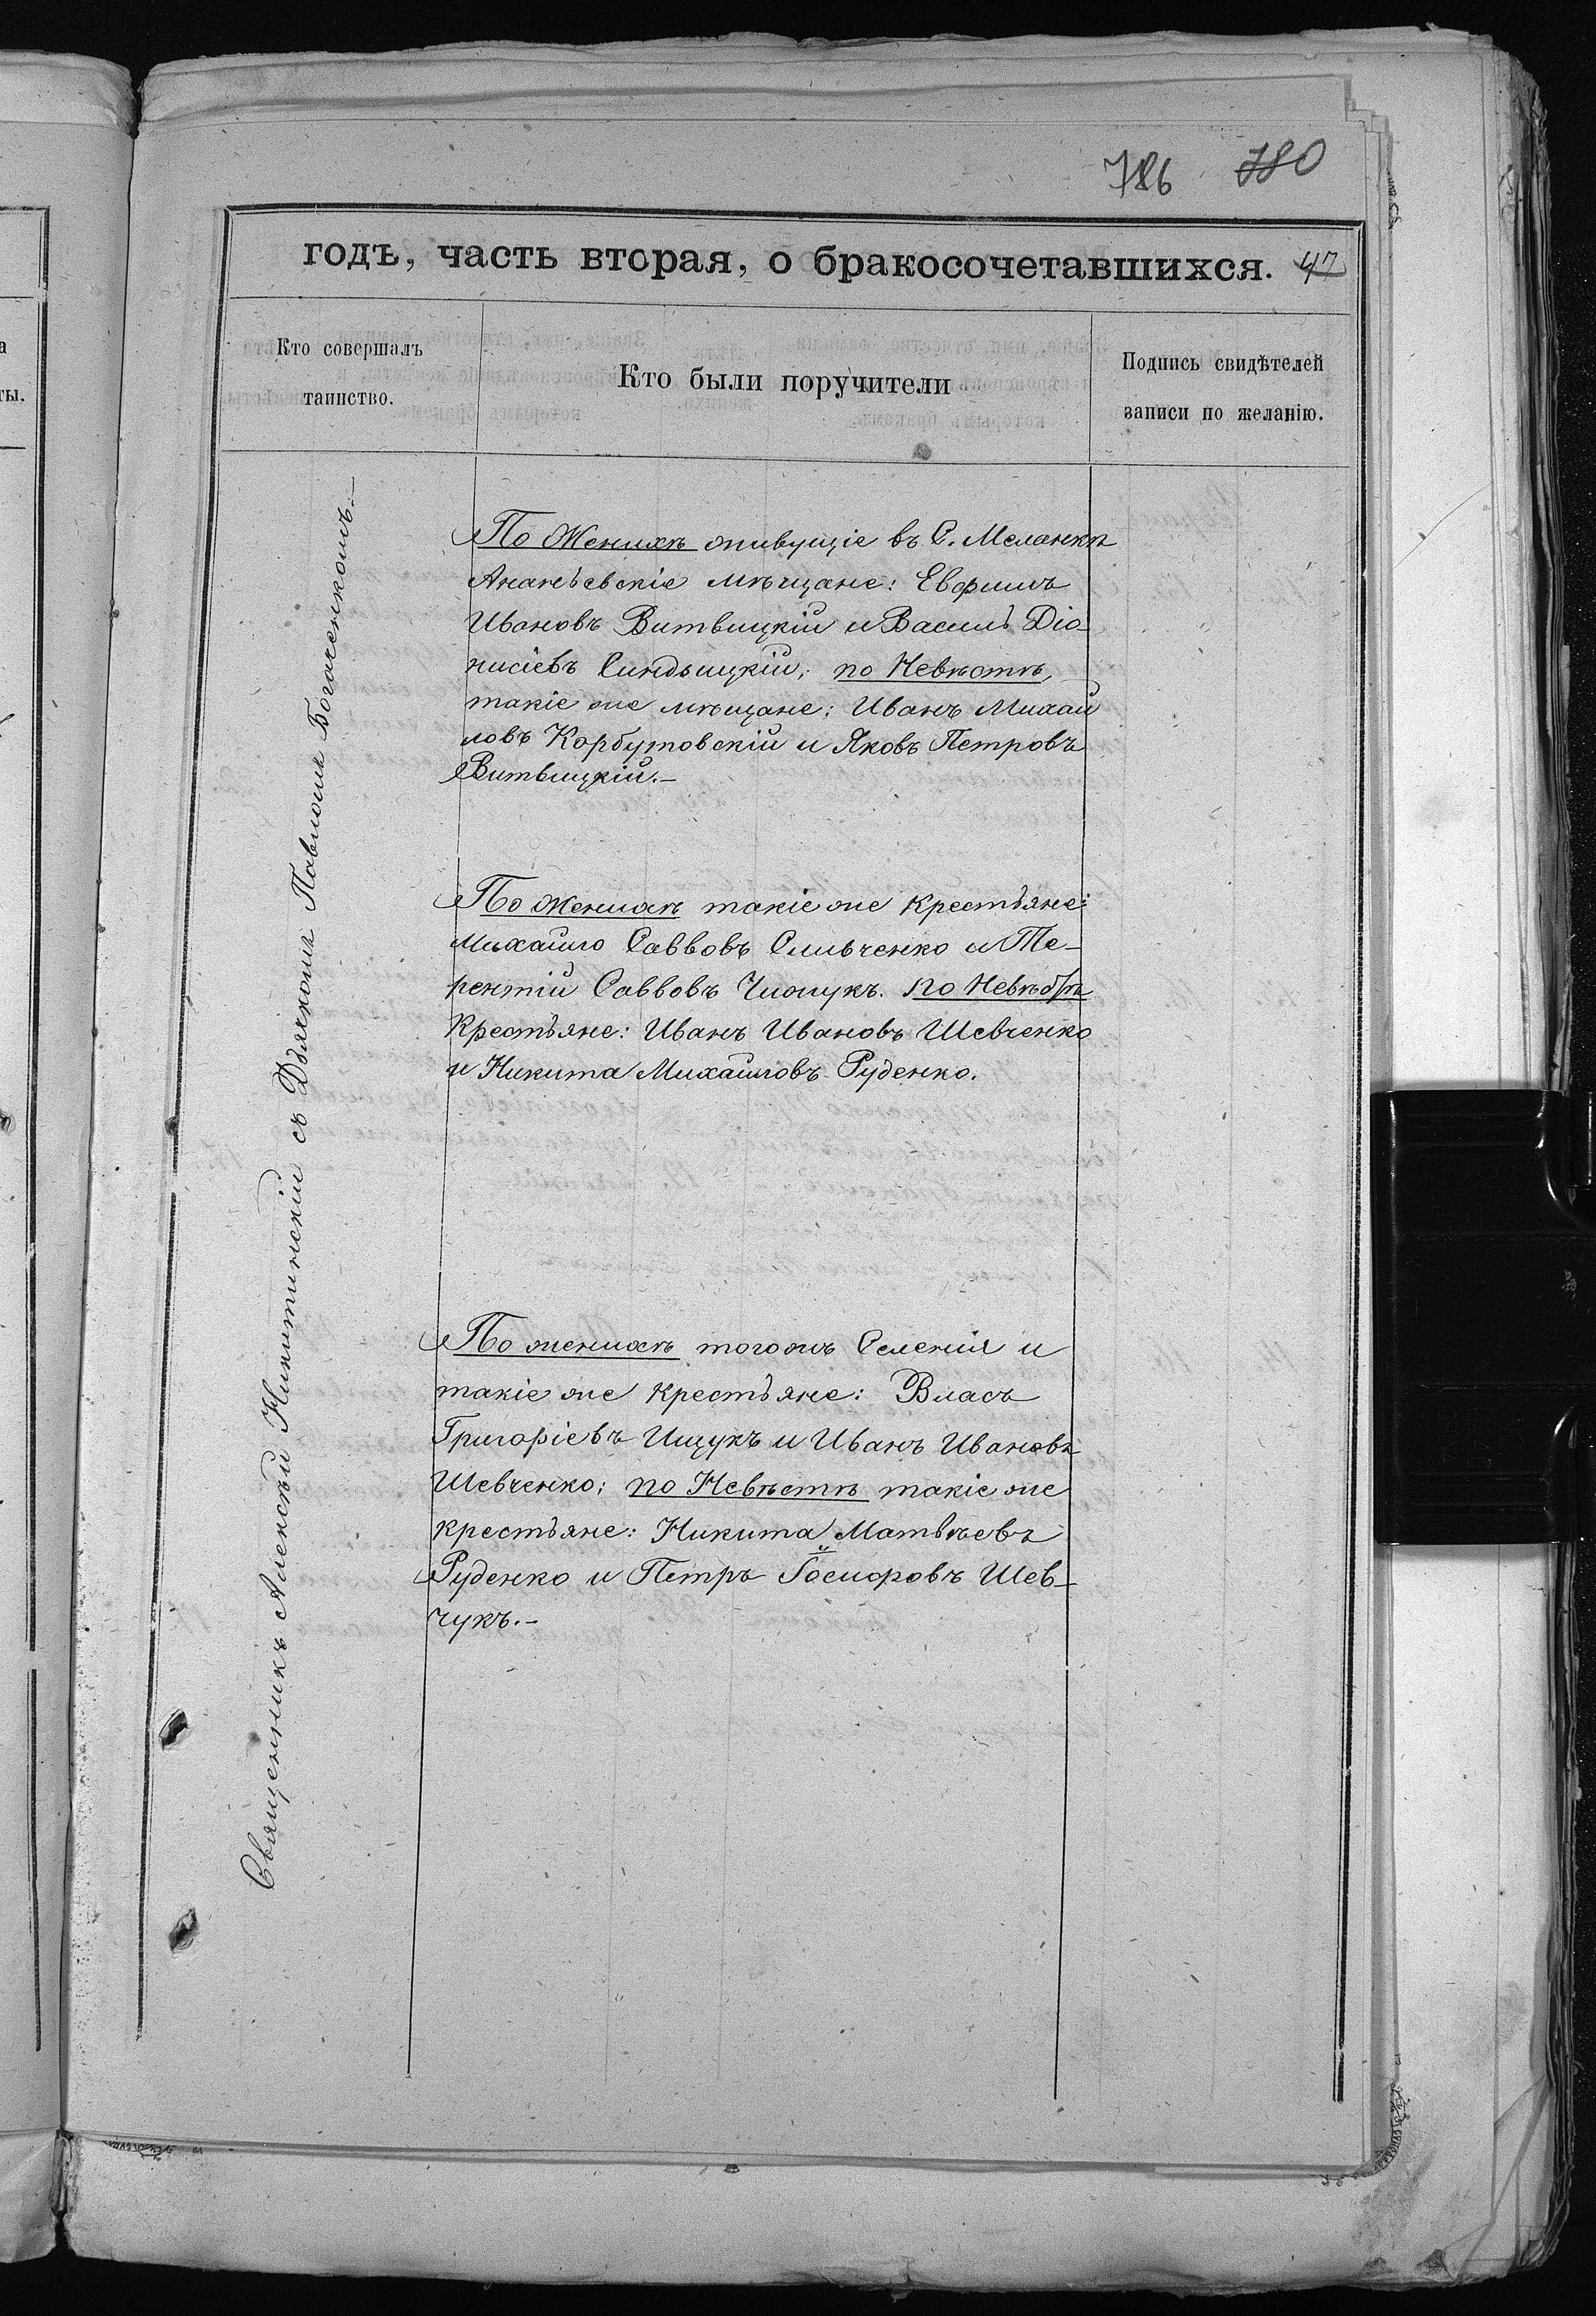 786 780
годъ, часть вторая, о бракосочетавшихся. 47
Кто совершалъ
таинство.
Кто были поручители
Подпись свидѣтелей
записи по желанію.
Священникъ Алексѣй Никитинскій съ Дьякомъ Павломъ Богаченкомъ.–
По Женихѣ живущіе въ С. Меланкѣ
Ананьевскіе мѣщане: Евфимъ
Ивановъ Витвицкій и Василь Діо-
нисіевъ Синдьицкій; по Невѣстѣ,
такіе же мѣщане: Иванъ Михай
ловъ Корбутовскій и Яковъ Петровъ
Витвицкій.–
По Женихѣ такіе же крестьяне:
Михайло Саввовъ Сливченко и Те-
рентій Саввовъ. по Невѣстѣ
Крестьяне: Иванъ Ивановъ Шевченко
и Никита Михайловъ Руденко.
По женихѣ тогожъ Селенія и
такіе же крестьяне: Власъ
Григоріевъ Ищукъ и Иванъ Ивановъ
Шевченко; по Невѣстѣ такіе же
крестьяне: Никита Матвѣевъ
Руденко и Петръ Шев-
чукъ.–